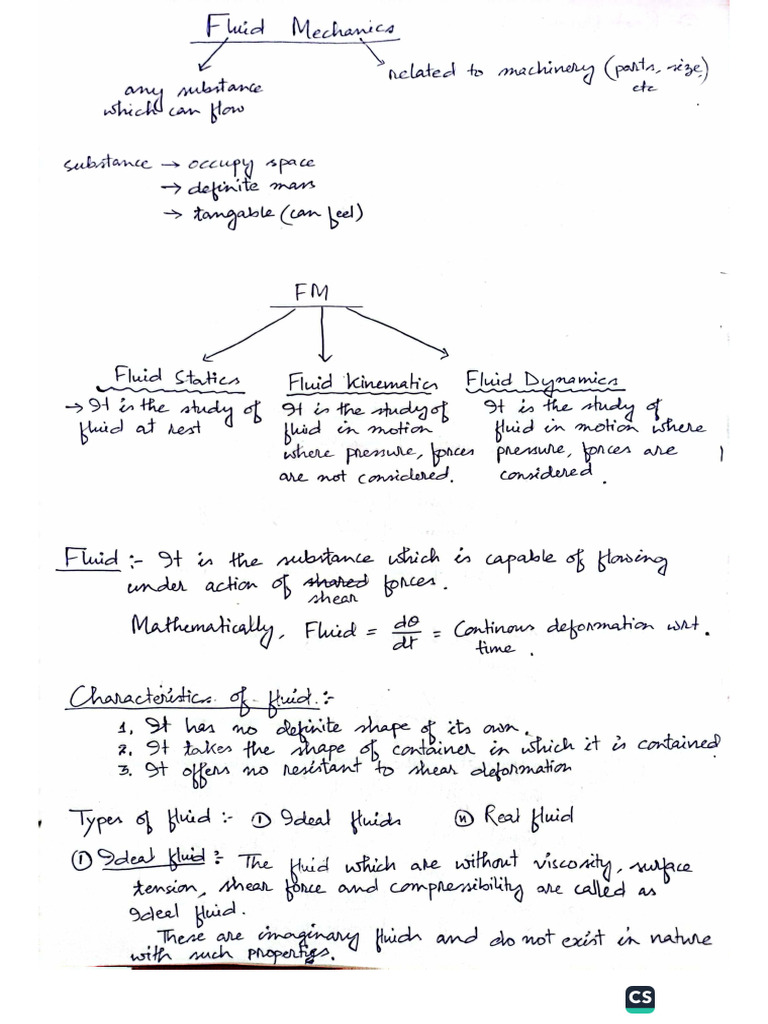 Fluid Mechanics
any substance
which can flow
related to machinery (parts, size,
etc
substance → occupy space
→ definite mass
→ tangable (can feel)
FM
Fluid Statics
→ It is the study of
fluid at rest
Fluid Kinematics
It is the study of
fluid in motion
where pressure, forces
are not considered.
Fluid Dynamics
It is the study of
fluid in motion where
pressure, forces are
considered.
Fluid :- It is the substance which is capable of flowing
under action of shared forces.
shear
Mathematically, Fluid = dθ/dt = Continous deformation wrt.
time.
Characteristics of fluid :-
1. It has no definite shape of its own.
2. It takes the shape of container in which it is contained
3. It offers no resistant to shear deformation
Types of fluid :- (i) Ideal fluids (ii) Real fluid
(i) Ideal fluid :- The fluid which are without viscosity, surface
tension, shear force and compressibility are called as
Ideel fluid.
These are imaginary fluids and do not exist in nature
with such properties.
CS